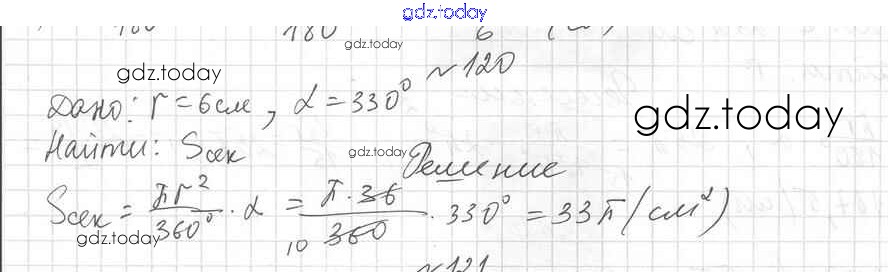 gdz.today
180 180 6
gdz.today
№120
gdz.today
Дано: r = 6 см, α = 330°
gdz.today
Найти: Sсек
gdz.today
Решение
Sсек = πr²/360° · α = π · 36/360 · 330° = 33π (см²)
10
gdz.today
№121